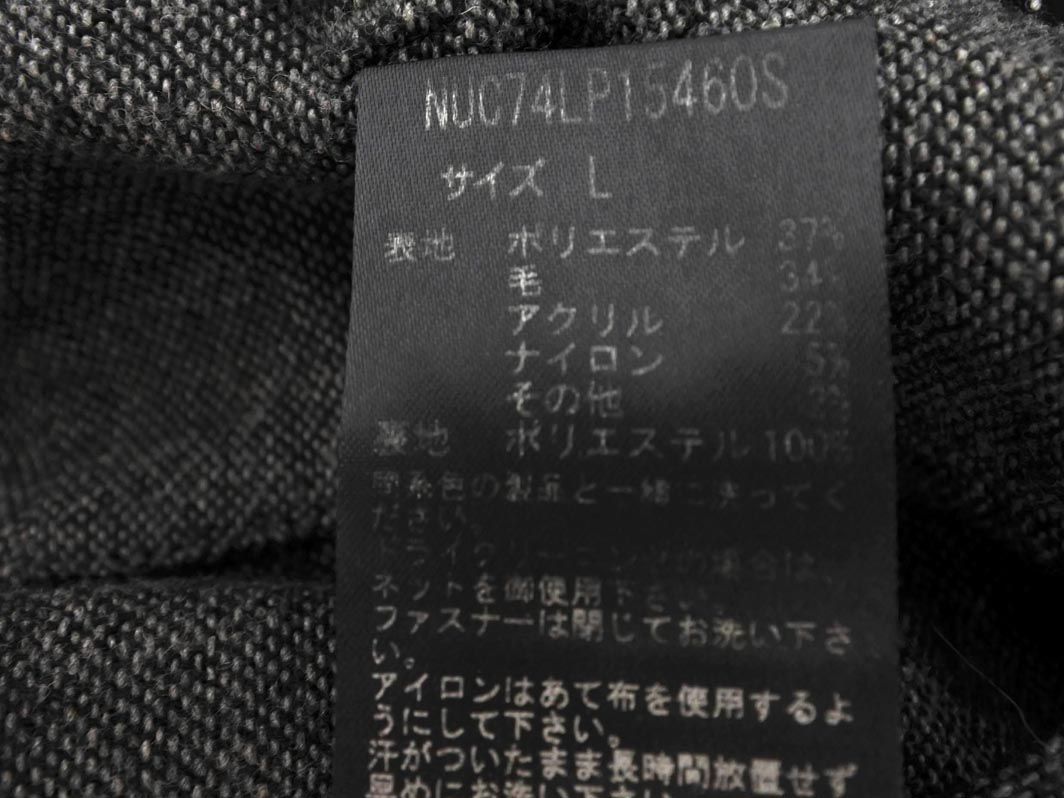 NUC74LP15460S
サイズ L
表地 ポリエステル 37%
毛 34%
アクリル 22%
ナイロン 5%
その他 2%
裏地 ポリエステル 100%
同系色の製品と一緒に洗ってく
ださい。
ドライクリーニングの場合は、
ネットを御使用下さい。
ファスナーは閉じてお洗い下さ
い。
アイロンはあて布を使用するよ
うにして下さい。
汗がついたまま長時間放置せず
早めにお洗い下さい。